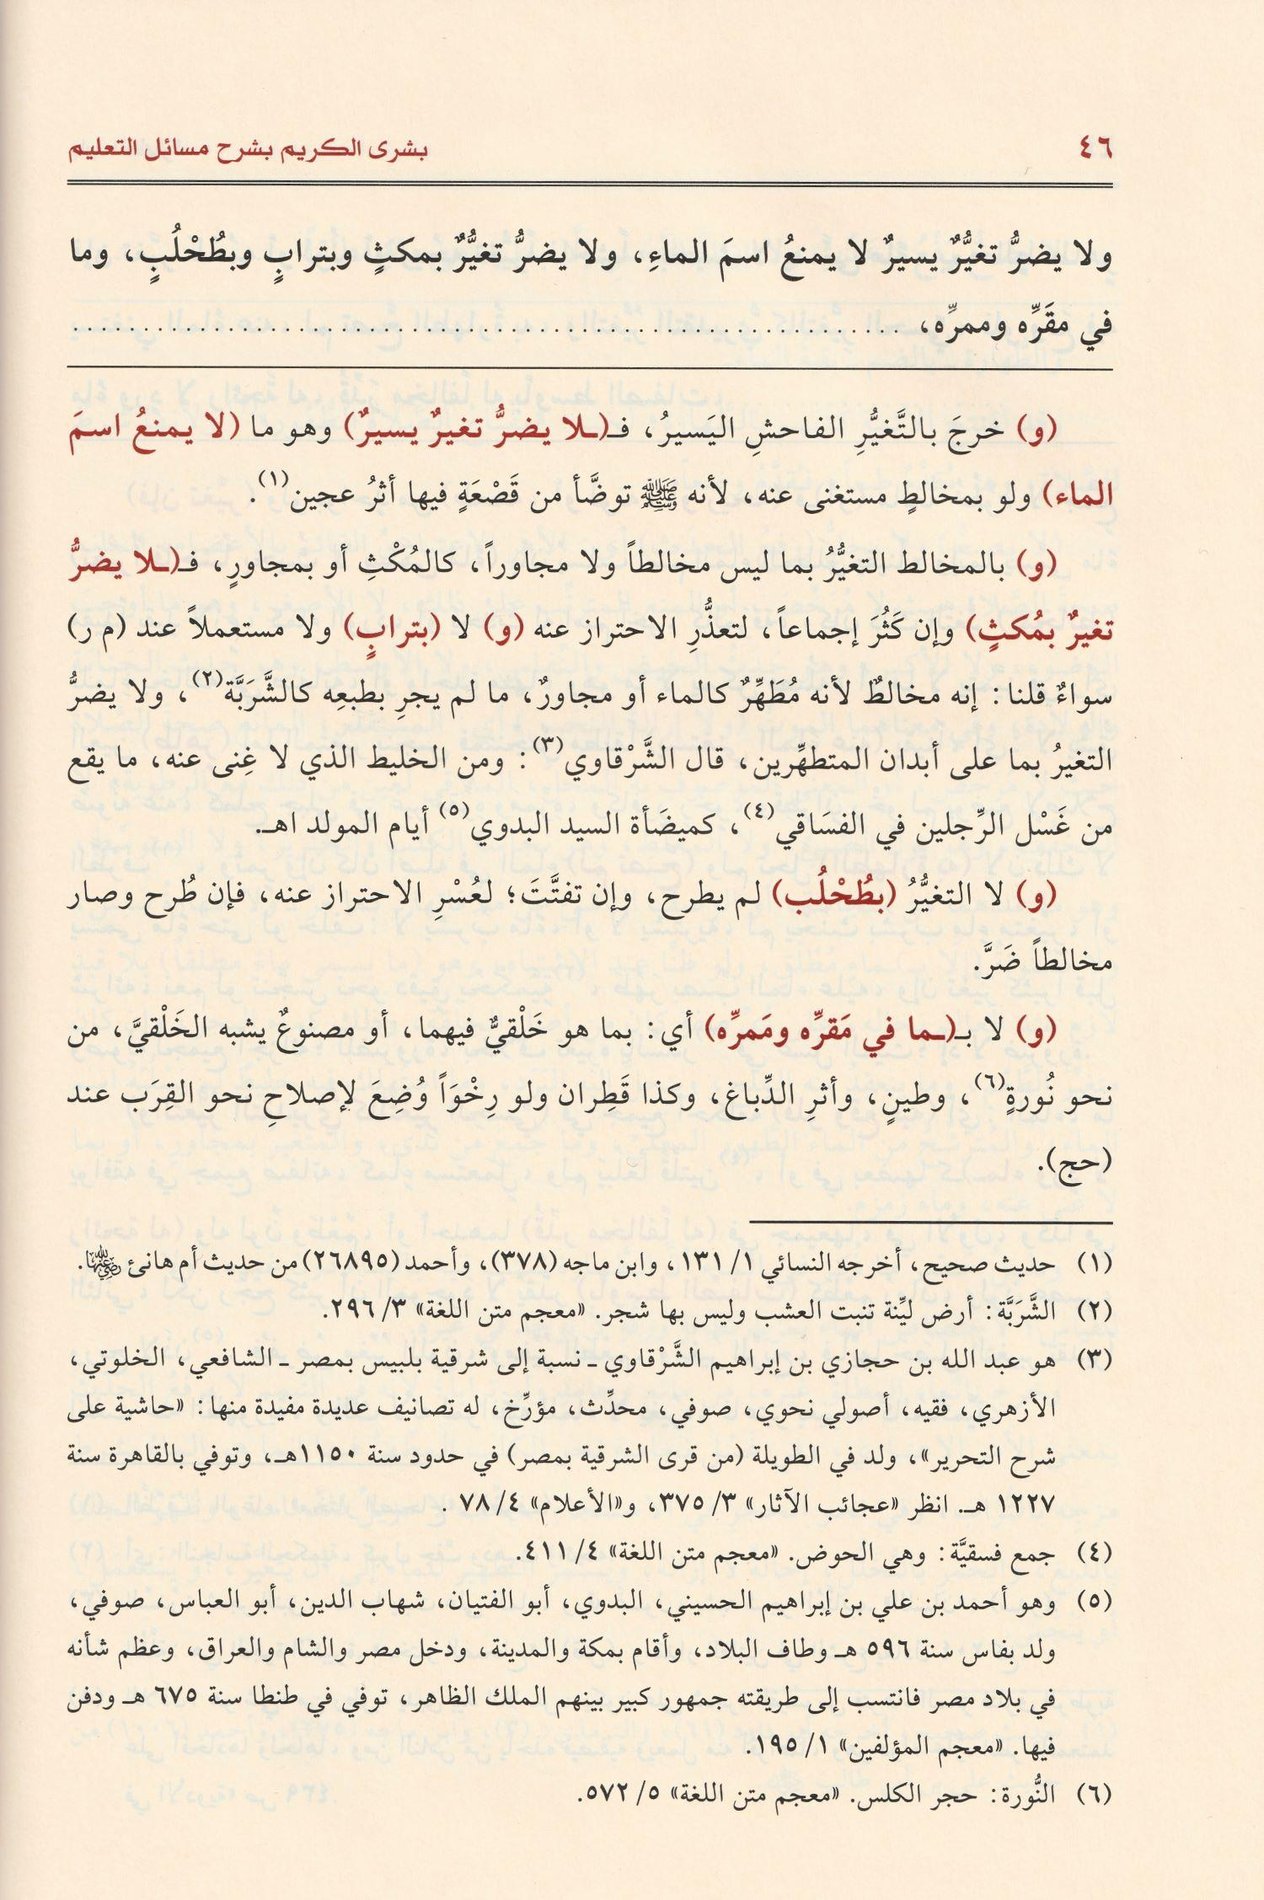 ٤٦
بشرى الكريم بشرح مسائل التعليم
ولا يضرُّ تغيُّرٌ يسيرٌ لا يمنعُ اسمَ الماءِ، ولا يضرُّ تغيُّرٌ بمكثٍ وبترابٍ وبطُحْلُبٍ، وما
في مقَرِّه وممرِّه، ............................................................
(و) خرجَ بالتَّغيُّرِ الفاحشِ اليَسيرُ، فـ(ـلا يضرُّ تغيرٌ يسيرٌ) وهو ما (لا يمنعُ اسمَ
الماء) ولو بمخالطٍ مستغنى عنه، لأنه ﷺ توضَّأ من قَصْعَةٍ فيها أثرُ عجين(١).
(و) بالمخالط التغيُّرُ بما ليس مخالطاً ولا مجاوراً، كالمُكْثِ أو بمجاورٍ، فـ(ـلا يضرُّ
تغيرٌ بمُكثٍ) وإن كَثُرَ إجماعاً، لتعذُّرِ الاحتراز عنه (و) لا (بترابٍ) ولا مستعملاً عند (م ر)
سواءٌ قلنا: إنه مخالطٌ لأنه مُطَهِّرٌ كالماء أو مجاورٌ، ما لم يجرِ بطبعِه كالشَّرَبَّة(٢)، ولا يضرُّ
التغيرُ بما على أبدان المتطهِّرين، قال الشَّرْقاوي(٣): ومن الخليط الذي لا غِنى عنه، ما يقع
من غَسْل الرِّجلين في الفسَاقي(٤)، كميضَأة السيد البدوي(٥) أيام المولد اهـ.
(و) لا التغيُّرُ (بطُحْلُب) لم يطرح، وإن تفتَّتَ؛ لعُسْرِ الاحتراز عنه، فإن طُرح وصار
مخالطاً ضَرَّ.
(و) لا بـ(ـما في مَقرِّه ومَمرِّه) أي: بما هو خَلْقيٌّ فيهما، أو مصنوعٌ يشبه الخَلْقيَّ، من
نحو نُورةٍ(٦)، وطينٍ، وأثرِ الدِّباغ، وكذا قَطِران ولو رِخْوَاً وُضِعَ لإصلاحِ نحو القِرَب عند
(حج).
(١) حديث صحيح، أخرجه النسائي ١/ ١٣١، وابن ماجه (٣٧٨)، وأحمد (٢٦٨٩٥) من حديث أم هانئ رضي الله عنها.
(٢) الشَّرَبَّة: أرض ليِّنة تنبت العشب وليس بها شجر. «معجم متن اللغة» ٣/ ٢٩٦.
(٣) هو عبد الله بن حجازي بن إبراهيم الشَّرْقاوي ـ نسبة إلى شرقية بلبيس بمصر ـ الشافعي، الخلوتي،
الأزهري، فقيه، أصولي نحوي، صوفي، محدِّث، مؤرِّخ، له تصانيف عديدة مفيدة منها: «حاشية على
شرح التحرير»، ولد في الطويلة (من قرى الشرقية بمصر) في حدود سنة ١١٥٠هـ، وتوفي بالقاهرة سنة
١٢٢٧ هـ. انظر «عجائب الآثار» ٣/ ٣٧٥، و«الأعلام» ٤/ ٧٨ .
(٤) جمع فسقيَّة: وهي الحوض. «معجم متن اللغة» ٤/ ٤١١.
(٥) وهو أحمد بن علي بن إبراهيم الحسيني، البدوي، أبو الفتيان، شهاب الدين، أبو العباس، صوفي،
ولد بفاس سنة ٥٩٦ هـ وطاف البلاد، وأقام بمكة والمدينة، ودخل مصر والشام والعراق، وعظم شأنه
في بلاد مصر فانتسب إلى طريقته جمهور كبير بينهم الملك الظاهر، توفي في طنطا سنة ٦٧٥ هـ ودفن
فيها. «معجم المؤلفين» ١/ ١٩٥.
(٦) النُّورة: حجر الكلس. «معجم متن اللغة» ٥/ ٥٧٢.